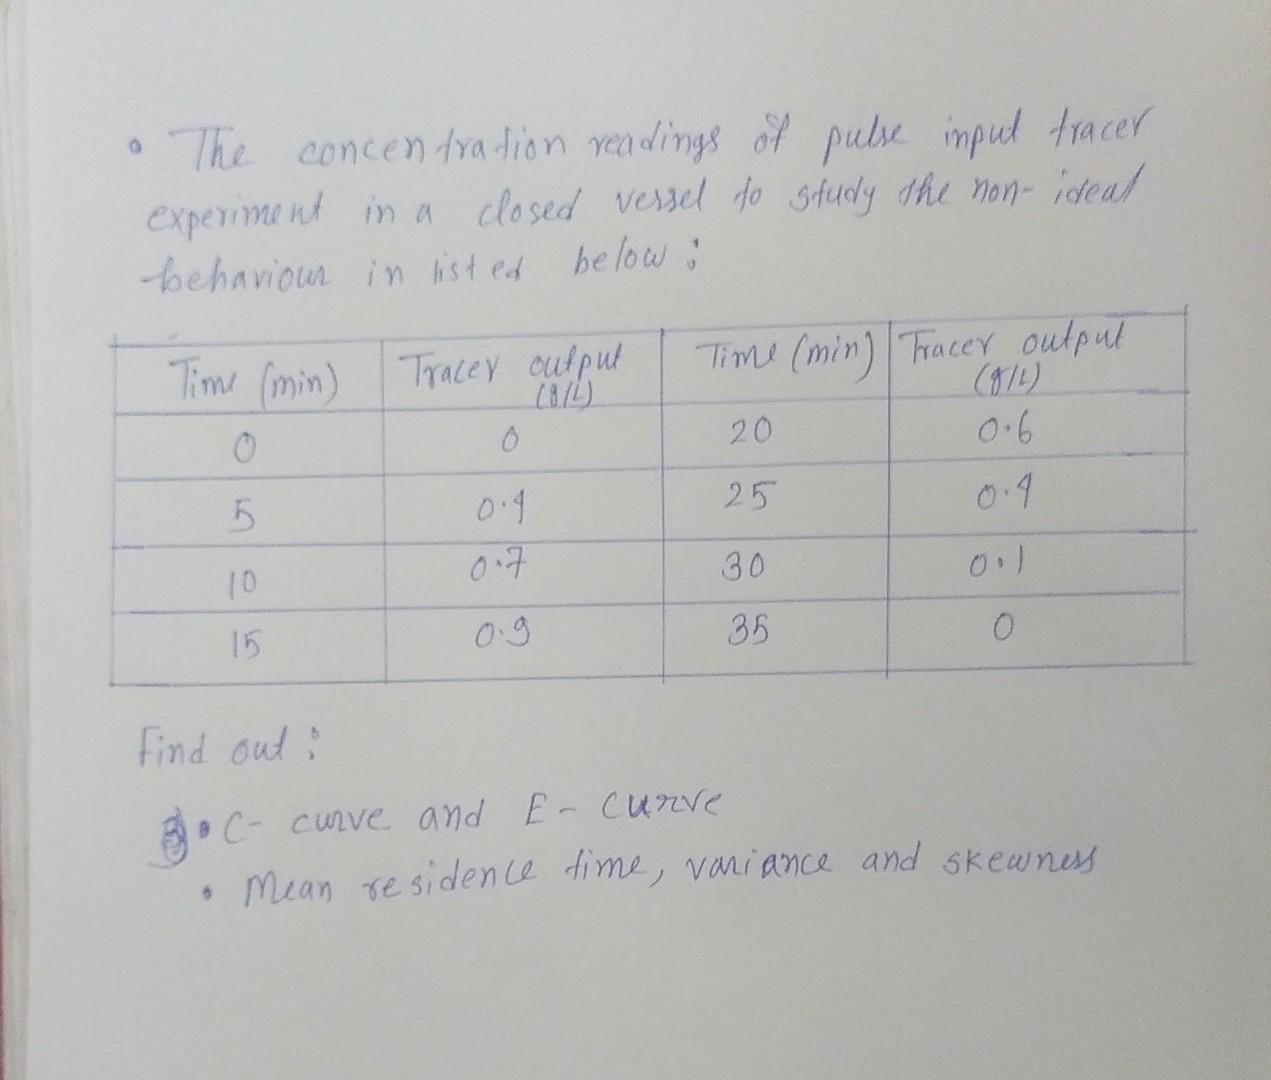 • The concentration readings of pulse input tracer
experiment in a closed vessel to study the non-ideal
behaviour in listed below :
Time (min) Tracer output (g/L) Time (min) Tracer output (g/L)
0 0 20 0.6
5 0.4 25 0.4
10 0.7 30 0.1
15 0.9 35 0
Find out :
• C- curve and E - curve
• Mean residence time, variance and skewness